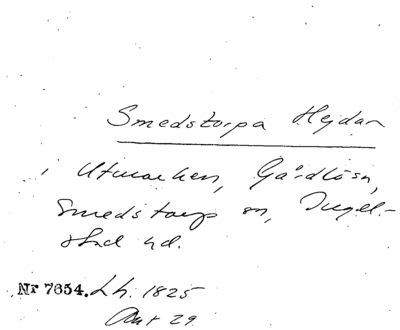 Smedstorpa Hejdan
i Utmarken, Gårdlösa,
Smedstorp sn, Ingel-
stad hd.
Nr 7654. Lh. 1825
Akt 29